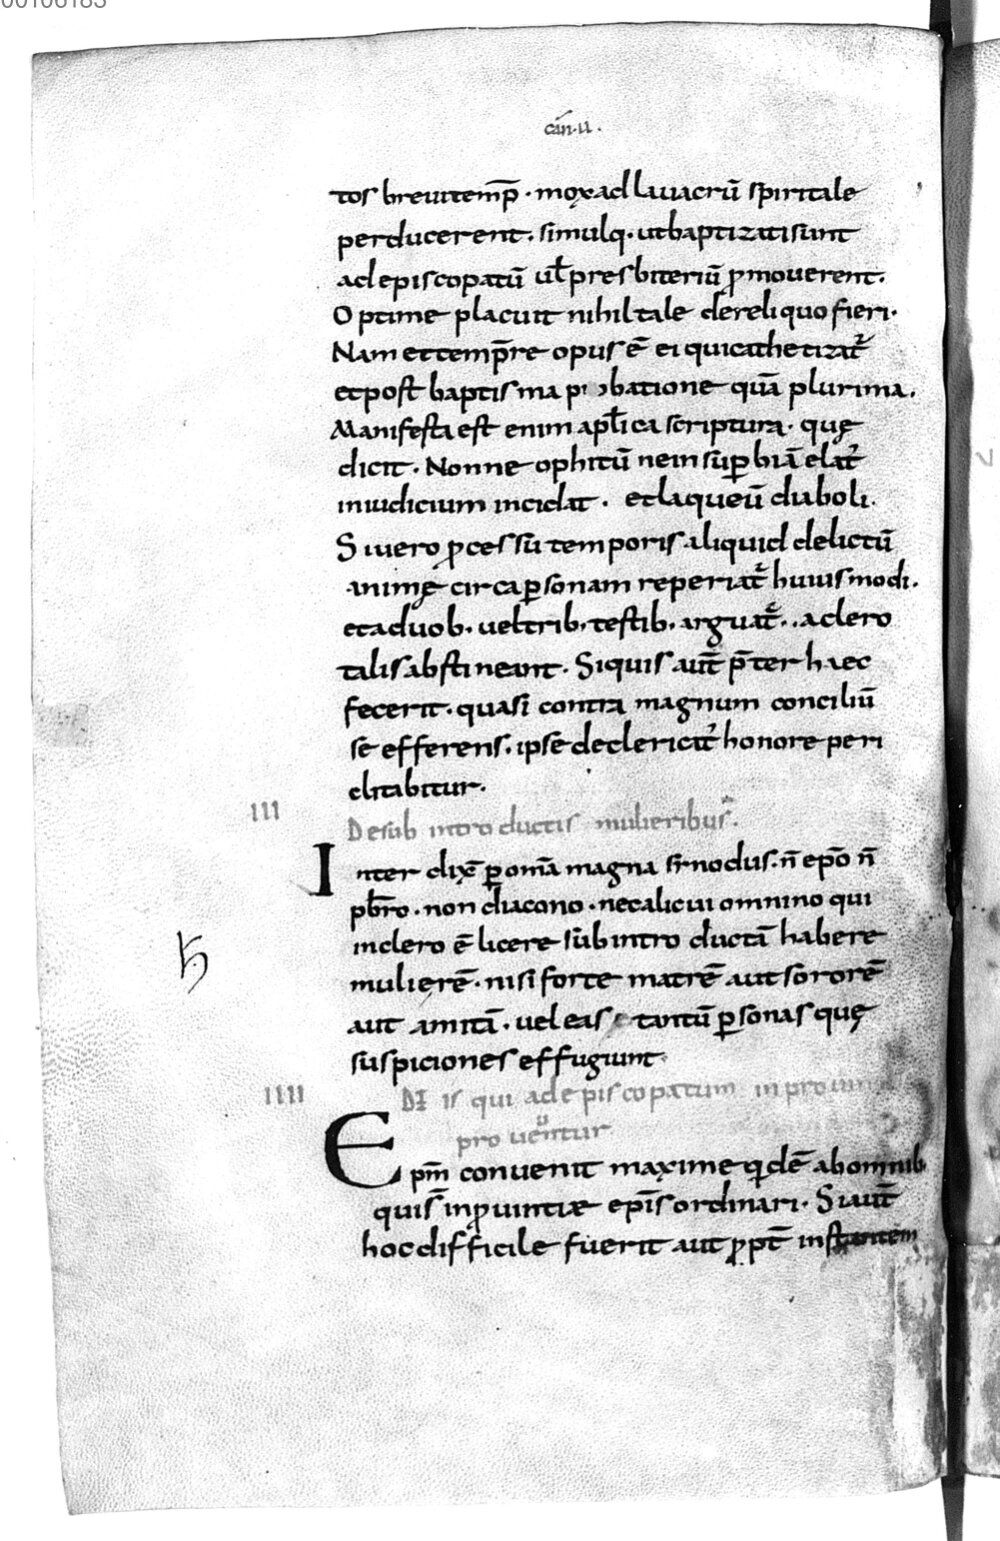 cañ·ii·
tos breui temp̄ · mox ad lauacrū spiritale
perducerent · simulq· ut baptizati sunt
ad episcopatū ul̄ presbiteriū ꝓmouerent·
Optime placuit nihil tale de reliquo fieri·
Nam et temp̄re opus ē ei qui cathetizat᷑
et post baptisma p obatione quā plurima·
Manifesta est enim apl̄ica scriptura · quę
dicit · Non neophitū ne in suꝑbiā elat᷑
in iudicium incidat · et laqueū diaboli·
Si uero ꝓcessu temporis aliquid delictū
animę circa ꝑsonam reperiat᷑ huiusmodi·
et a duob· uel trib· testib· arguat᷑ · a clero
talis abstineant · Si quis aut̄ p̄ter haec
fecerit · quasi contra magnum conciliū
se efferens · ipse de clericat᷑ honore peri
clitabitur·
III
De sub introductis mulieribus·
Inter dixē ꝑ omīa magna sinodus · n̄ ep̄o n̄
pb̄ro · non diacono · nec alicui omnino qui
in clero ē licere sub introductā habere
mulierē · nisi forte matrē aut sororē
aut amitā · uel eas tantū ꝑsonas quę
suspiciones effugiunt·
IIII
DE is qui ad episcopatum in
prouentur
Epm̄ conuenit maxime qidē ab omnib·
qui s̄ in ꝓuintiæ epīs ordinari · Si aut̄
hoc difficile fuerit aut ꝓpt̄ instantem